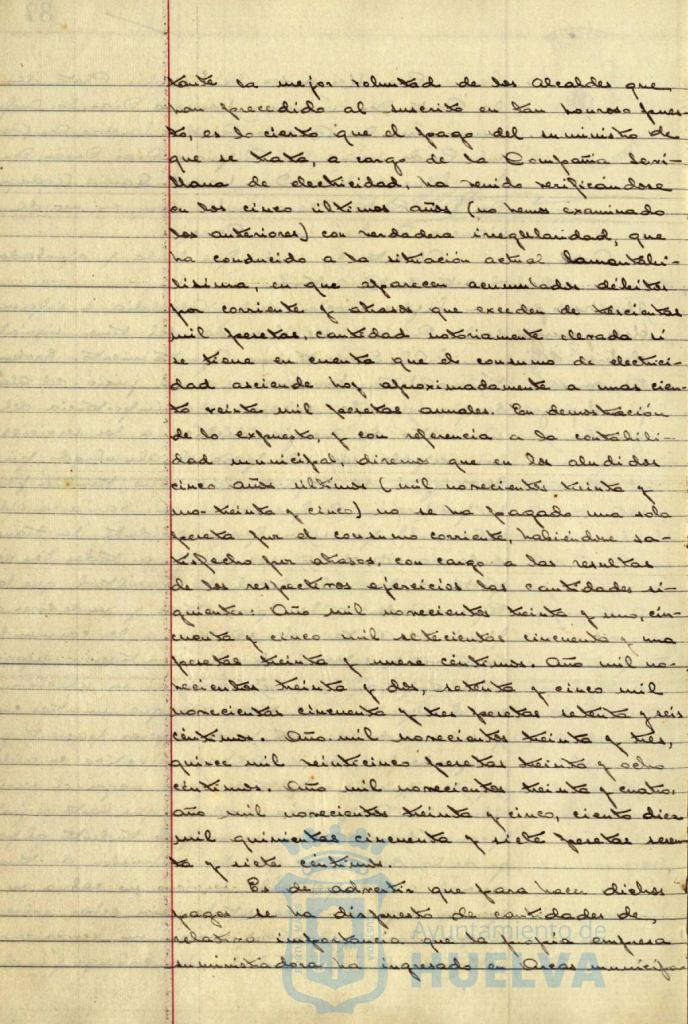 tante la mejor voluntad de los Alcaldes que
han precedido al suscrito en tan honroso pues-
to, es lo cierto que el pago del suministro de
que se trata, a cargo de la Compañia Sevi-
llana de electricidad, ha venido verificándose
en los cinco últimos años (no hemos examinado
los anteriores) con verdadera irregularidad, que
ha conducido a la situación actual lamentabi-
lisima, en que aparecen acumulados débitos
por corriente y atrasos que exceden de trescientas
mil pesetas, cantidad notoriamente elevada si
se tiene en cuenta que el consumo de electrici-
dad asciende hoy aproximadamente a unas cien-
to veinte mil pesetas anuales. En demostración
de lo expuesto, y con referencia a la contabili-
dad municipal, diremos que en los aludidos
cinco años últimos (mil novecientos treinta y
uno-treinta y cinco) no se ha pagado una sola
peseta por el consumo corriente, habiéndose sa-
tisfecho por atrasos, con cargo a las resultas
de los respectivos ejercicios las cantidades si-
guientes: Año mil novecientos treinta y uno, cin-
cuenta y cinco mil setecientas cincuenta y una
pesetas treinta y nueve céntimos. Año mil no-
vecientos treinta y dos, setenta y cinco mil
novecientas cincuenta y tres pesetas setenta y seis
céntimos. Año mil novecientos treinta y tres,
quince mil veinticinco pesetas treinta y ocho
céntimos. Año mil novecientos treinta y cuatro,
año mil novecientos treinta y cinco, ciento diez
mil quinientas cincuenta y siete pesetas sesen-
ta y siete céntimos.
Es de advertir que para hacer dichos
pagos se ha dispuesto de cantidades de,
relativa importancia que la propia empresa
suministradora ha ingresado en Arcas municipa-
Ayuntamiento de
HUELVA